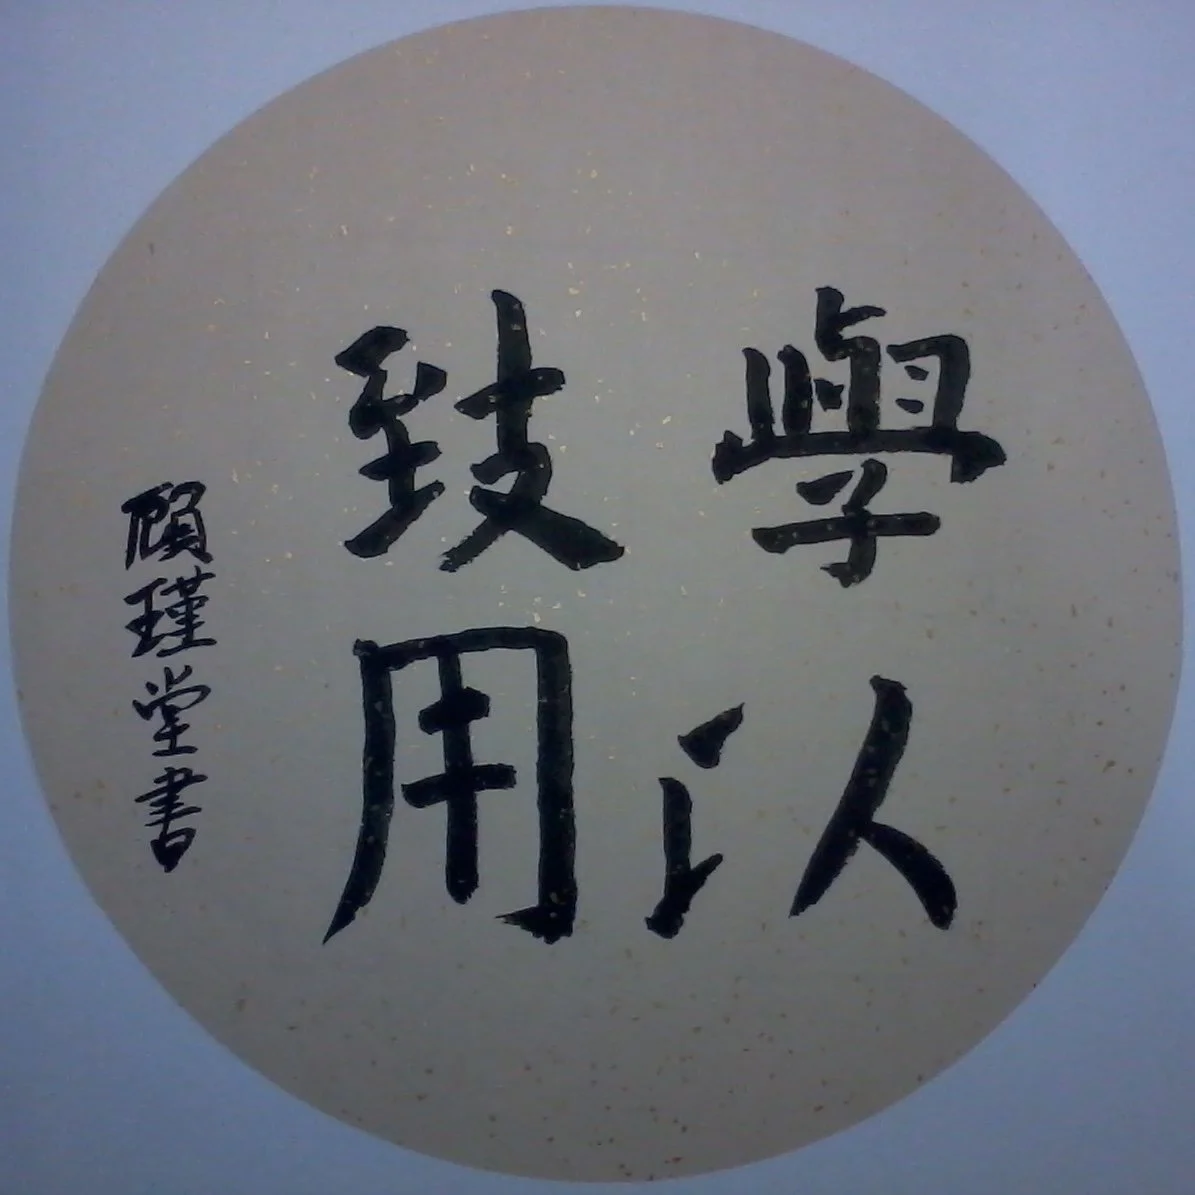 學以
致用
顧瑾堂書